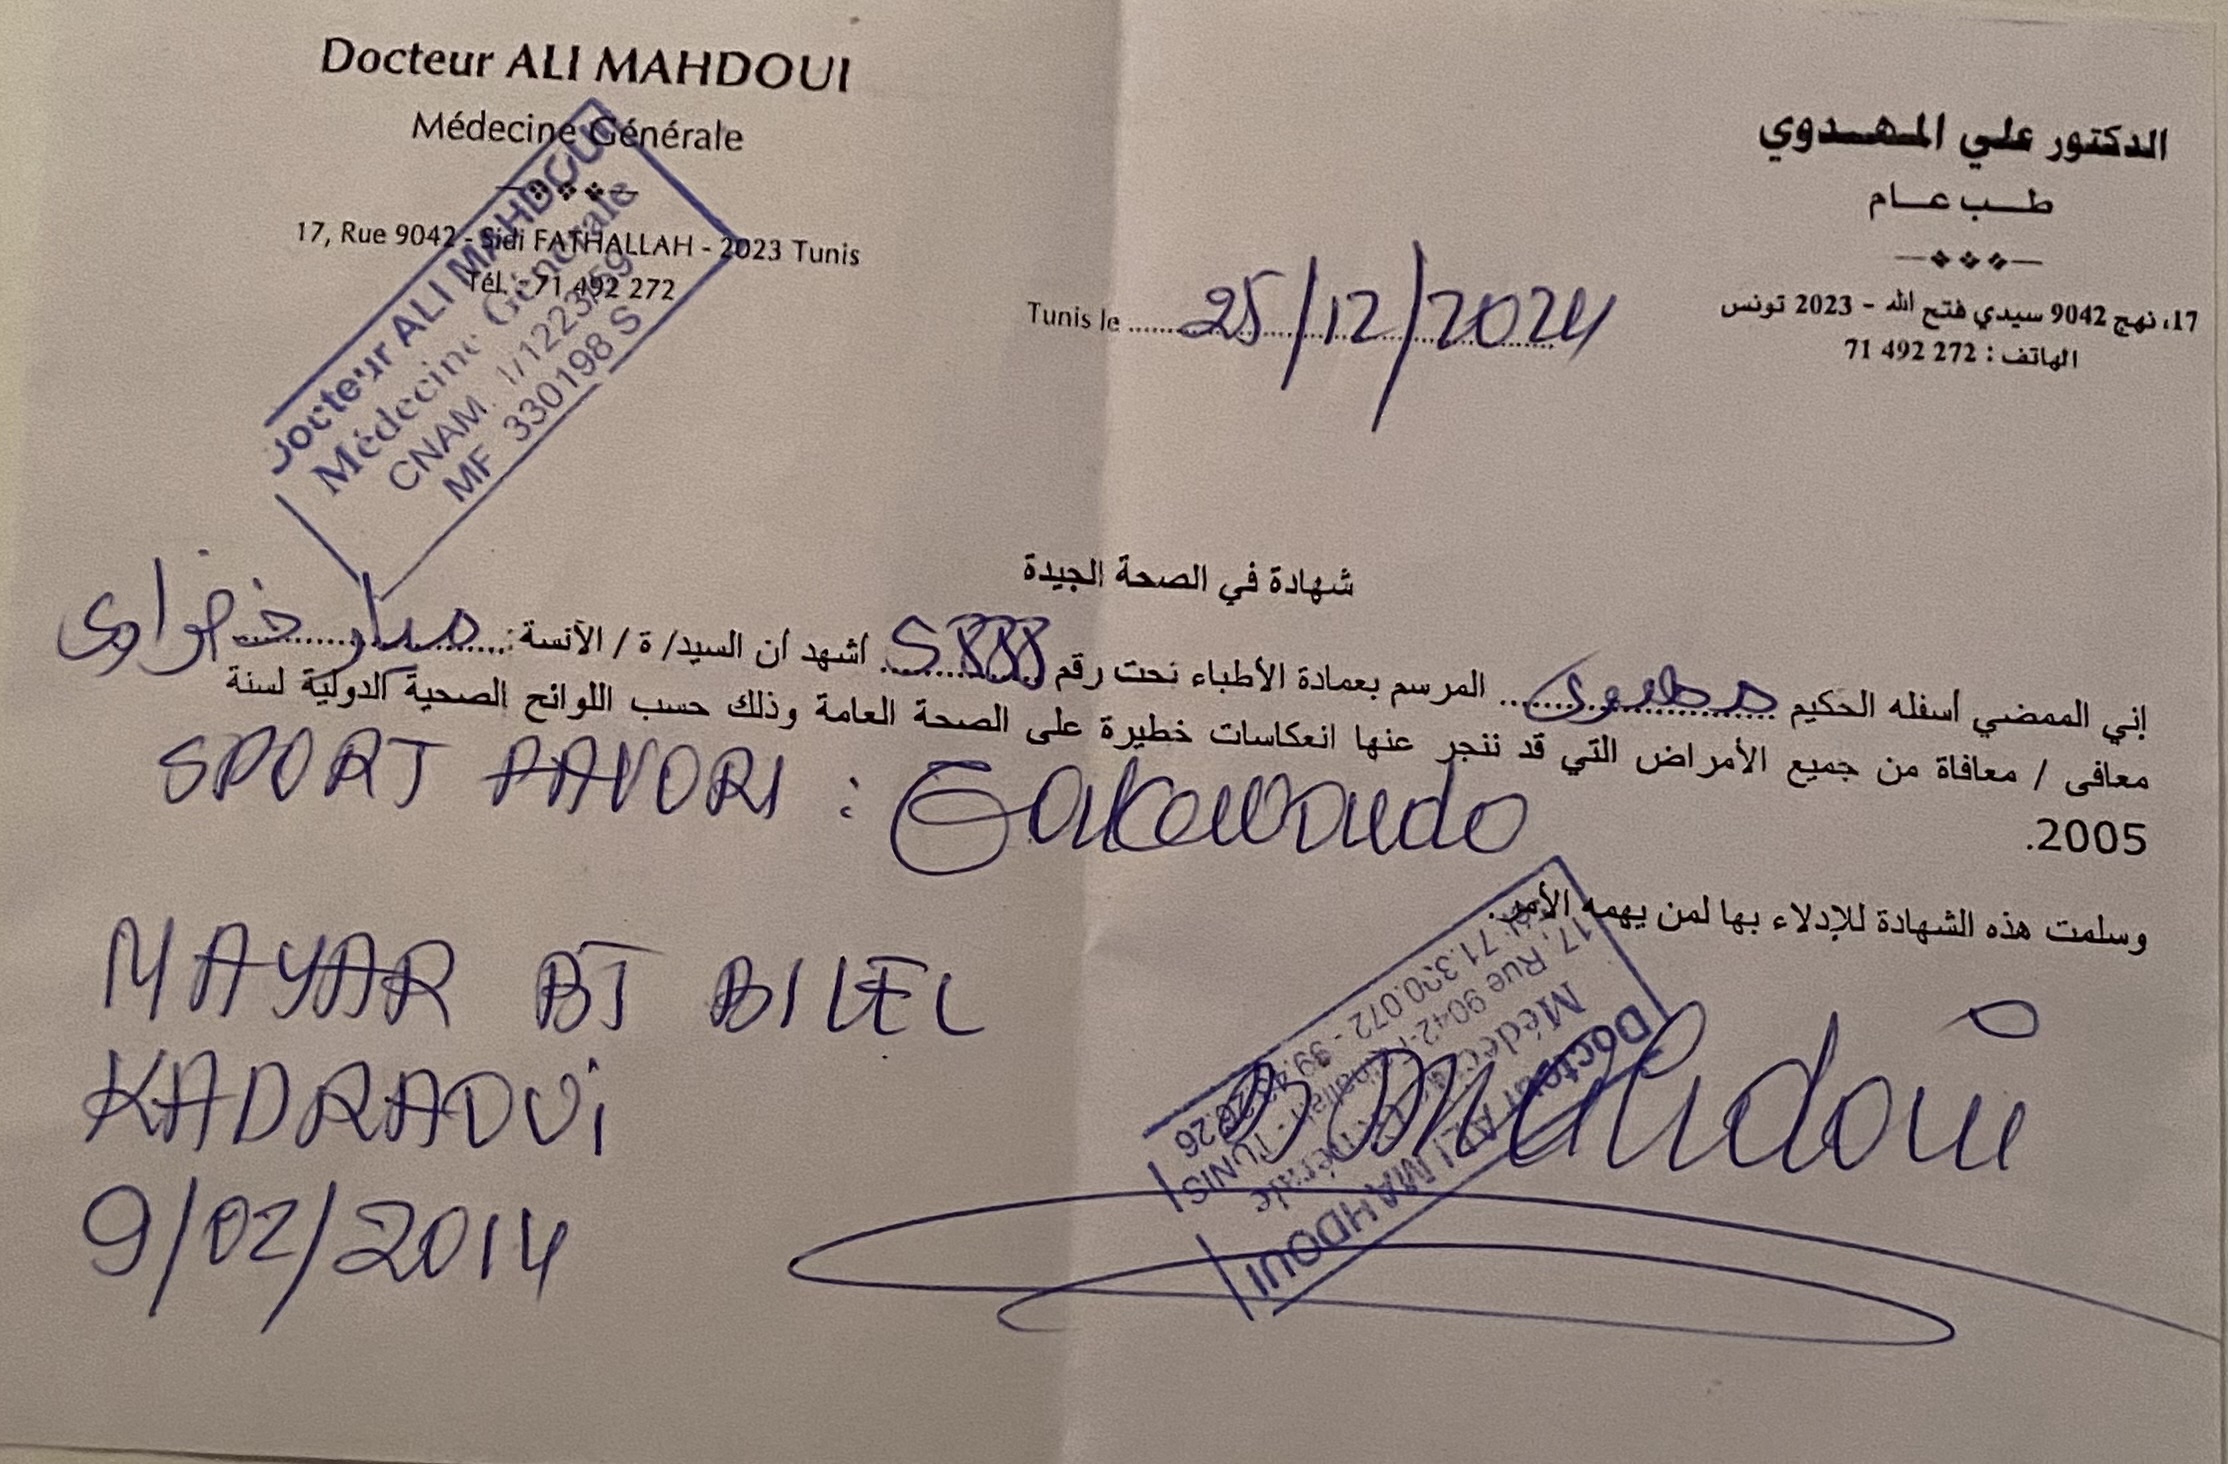 Docteur ALI MAHDOUI
Médecine Générale
17, Rue 9042 - Sidi FATHALLAH - 2023 Tunis
Tél. : 71 492 272
الدكتور علي المهدوي
طب عام
17، نهج 9042 سيدي فتح الله - 2023 تونس
الهاتف : 272 492 71
Docteur ALI MAHDOUI
Médecine Générale
CNAM. 1/1223/59
MF 330198 S
Tunis le 25/12/2024
شهادة في الصحة الجيدة
إني الممضي أسفله الحكيم مهدوي المرسم بعمادة الأطباء تحت رقم أشهد أن السيد/ ة / الآنسة : ميار خضراوي
معافى / معافاة من جميع الأمراض التي قد تنجر عنها انعكاسات خطيرة على الصحة العامة وذلك حسب اللوائح الصحية الدولية لسنة
2005.
SPORT FAVORI : Taekwondo
وسلمت هذه الشهادة للإدلاء بها لمن يهمه الأمر.
MAYAR BT BILEL
KADRAOUi
9/02/2014
Docteur ALI MAHDOUI
Médecine Générale
17, Rue 9042 - Fathallah - TUNIS
Mahdoui